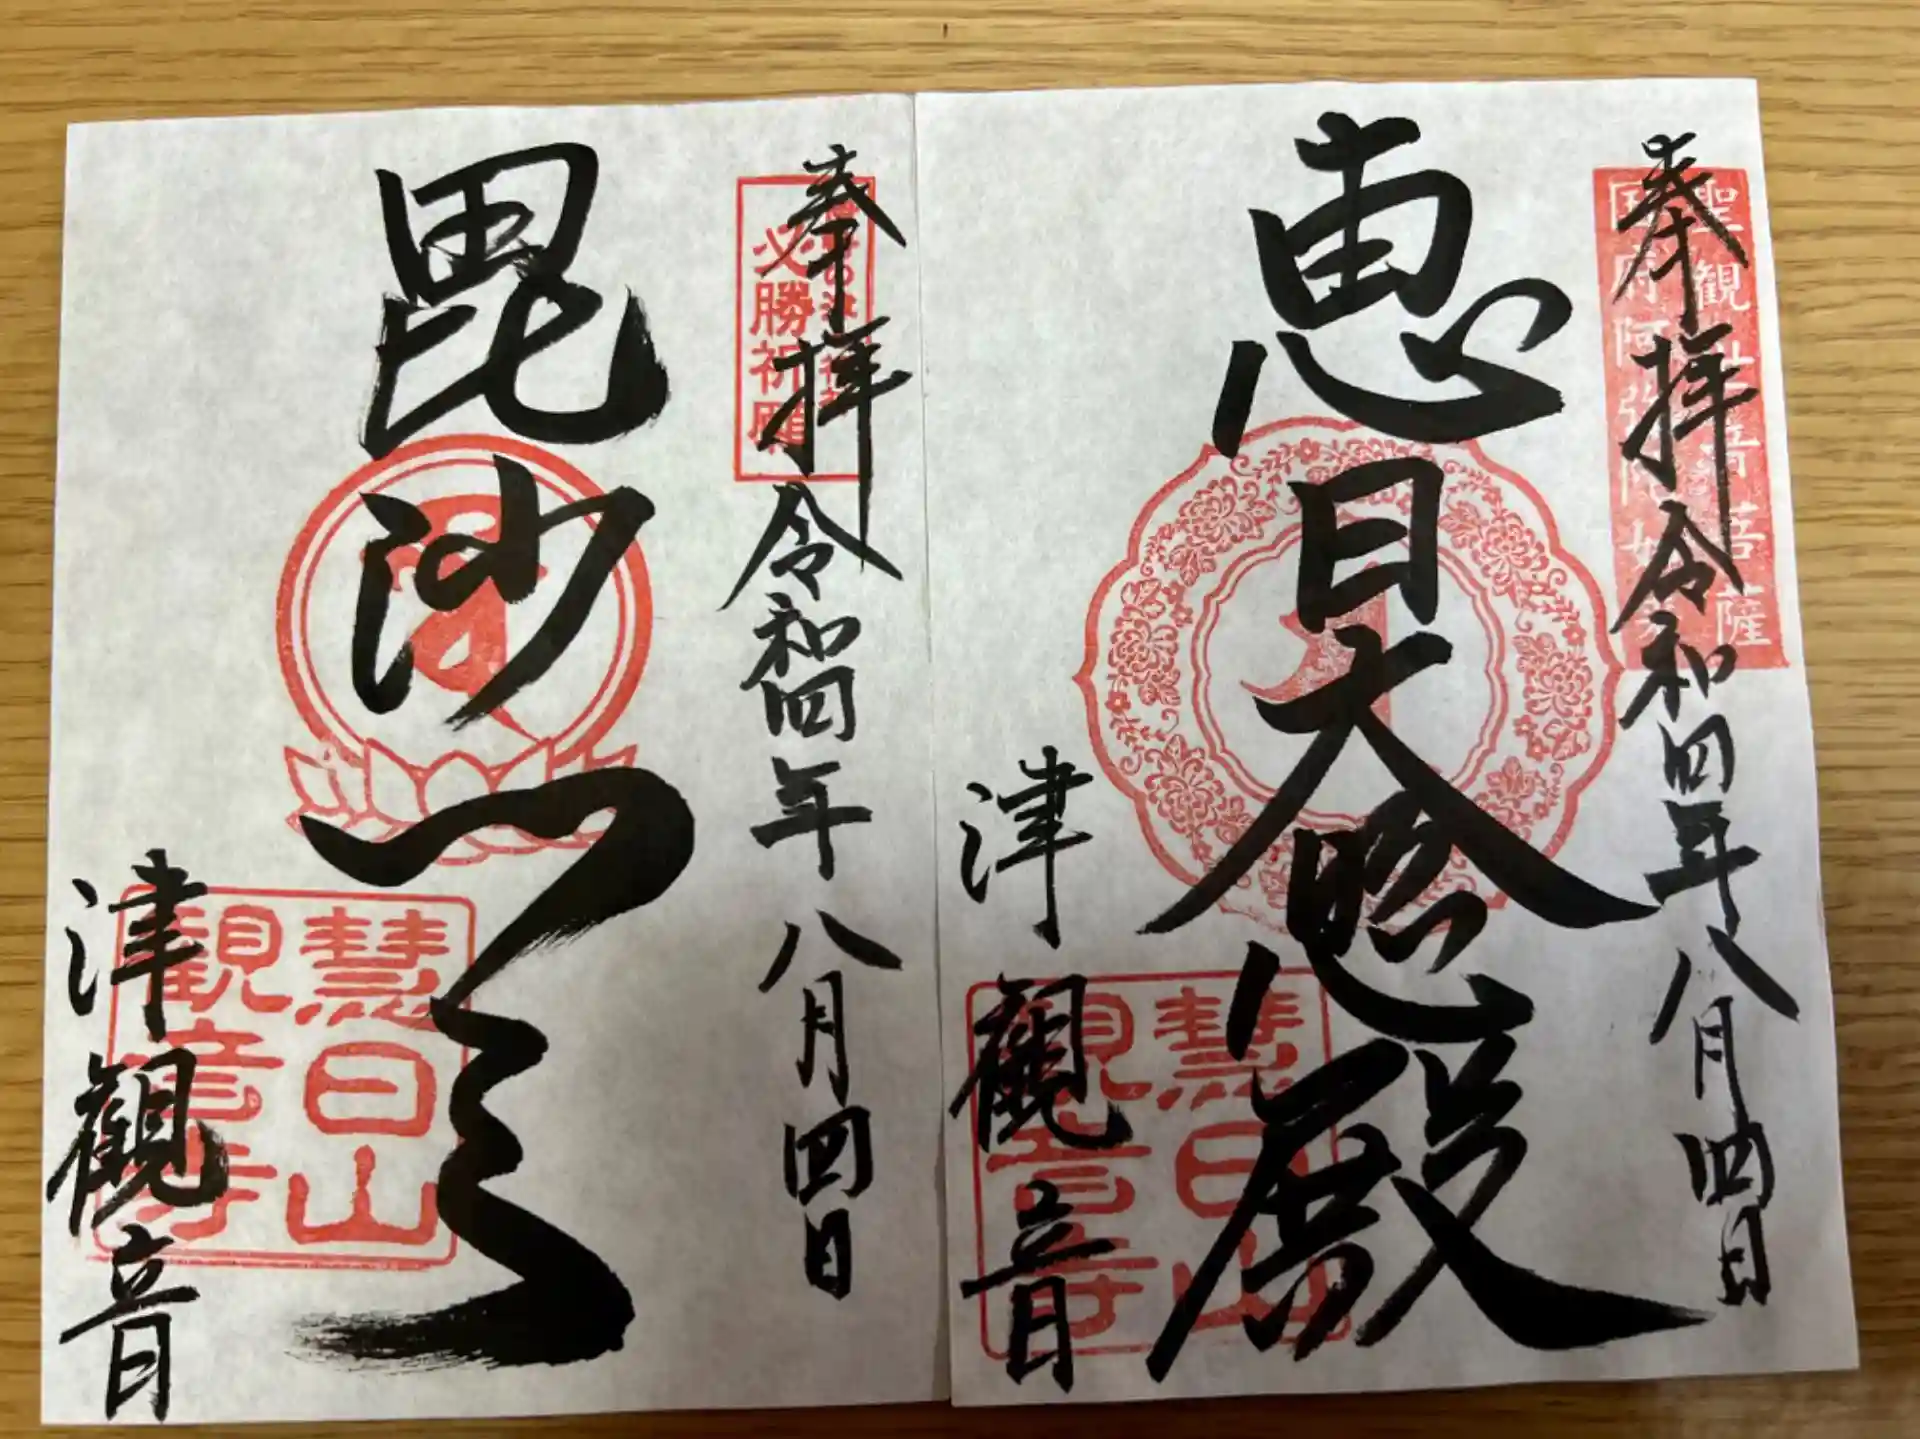 奉拝 令和四年八月四日
聖観世音菩薩
国府阿弥陀如来
恵日大 殿
津観音
慧日山
観音寺
奉拝 令和四年八月四日
必勝祈願
毘沙門天
津観音
慧日山
観音寺